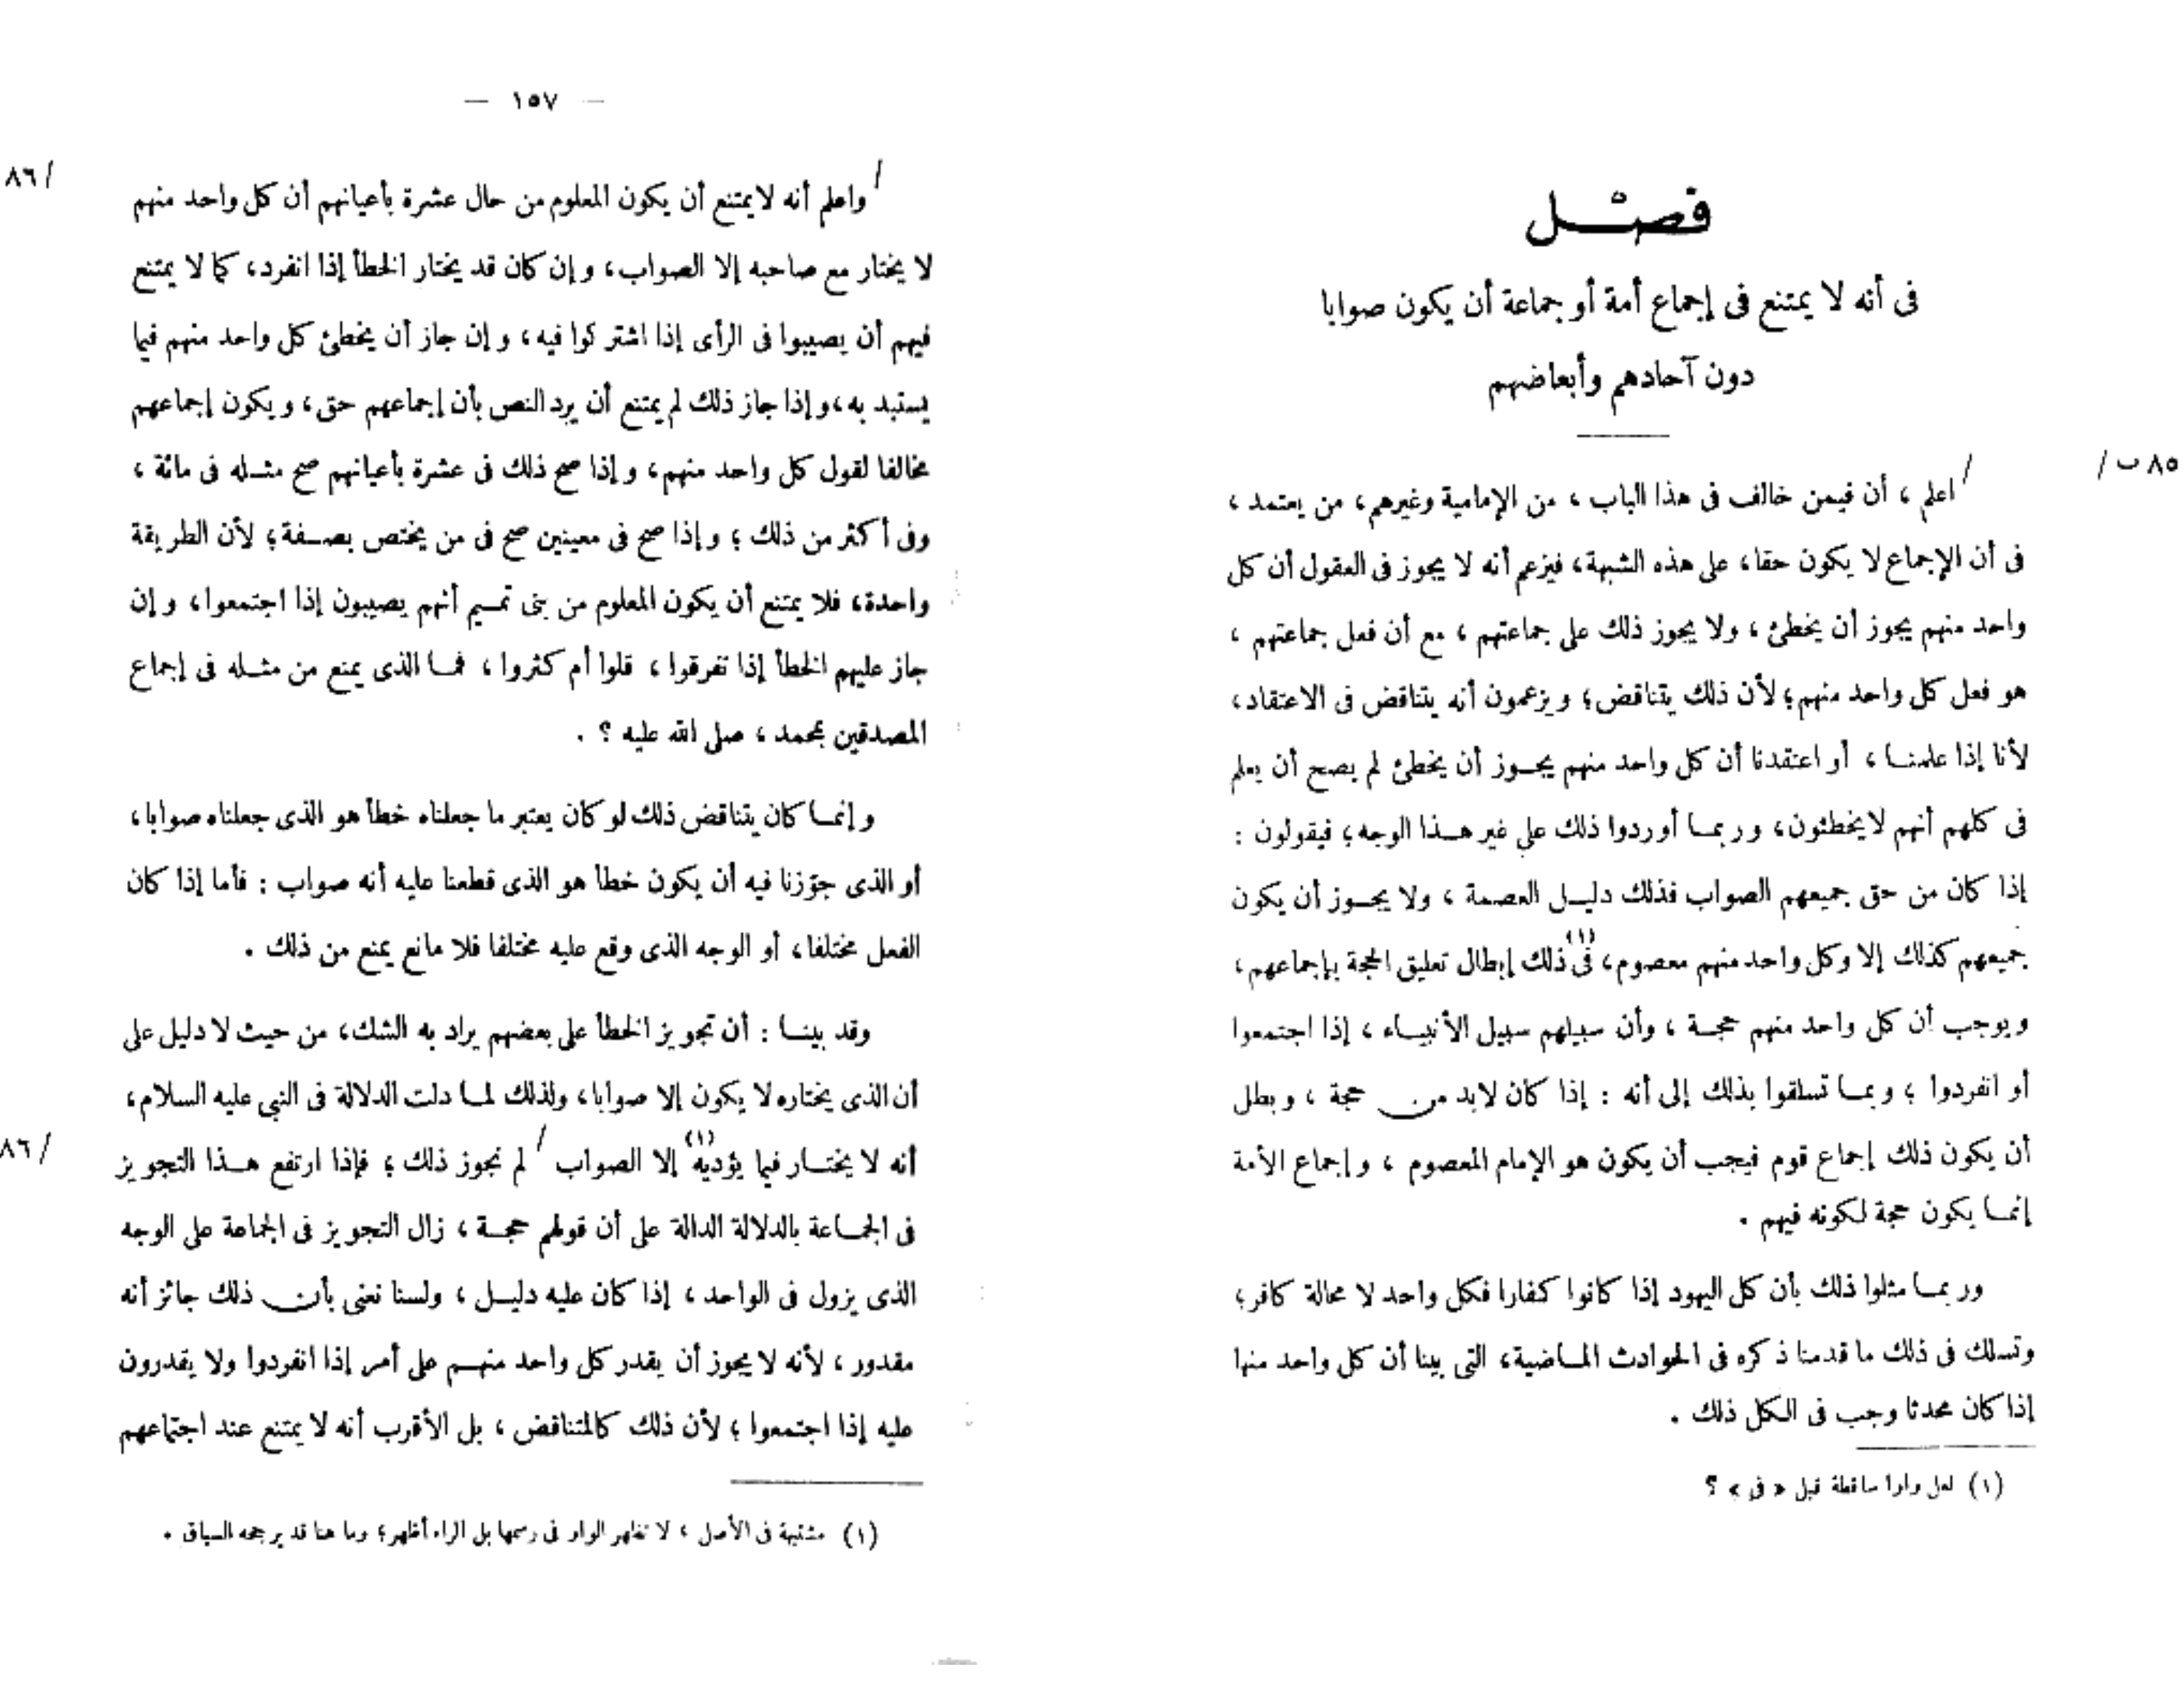 فصل
فى أنه لا يمتنع فى إجماع أمة أو جماعة أن يكون صوابا
دون آحادهم وأبعاضهم
٨٥ ب /
/ اعلم ، أن فيمن خالف فى هذا الباب ، من الإمامية وغيرهم، من يعتمد ،
فى أن الإجماع لا يكون حقا، على هذه الشبهة، فيزعم أنه لا يجوز فى العقول أن كل
واحد منهم يجوز أن يخطئ ، ولا يجوز ذلك على جماعتهم ، مع أن فعل جماعتهم ،
هو فعل كل واحد منهم؛ لأن ذلك يتناقض؛ ويزعمون أنه يتناقض فى الاعتقاد،
لأنا إذا علمنا ، أو اعتقدنا أن كل واحد منهم يجوز أن يخطئ لم يصح أن يعلم
فى كلهم أنهم لا يخطئون، وربما أوردوا ذلك على غير هذا الوجه؛ فيقولون :
إذا كان من حق جميعهم الصواب فذلك دليل العصمة ، ولا يجوز أن يكون
جميعهم كذلك إلا وكل واحد منهم معصوم، فى(١) ذلك إبطال تعليق الحجة بإجماعهم،
ويوجب أن كل واحد منهم حجة ، وأن سبيلهم سبيل الأنبياء ، إذا اجتمعوا
أو انفردوا ؛ وبما تسلقوا بذلك إلى أنه : إذا كان لابد من حجة ، وبطل
أن يكون ذلك إجماع قوم فيجب أن يكون هو الإمام المعصوم ، وإجماع الأمة
إنما يكون حجة لكونه فيهم .
وربما مثلوا ذلك بأن كل اليهود إذا كانوا كفارا فكل واحد لا محالة كافر؛
وتسلك فى ذلك ما قدمنا ذكره فى الحوادث الماضية، التى بينا أن كل واحد منها
إذا كان محدثا وجب فى الكل ذلك .
(١) لعل واوا ساقطة قبل « فى » ؟
— ١٥٧ —
٨٦ /
/ واعلم أنه لا يمتنع أن يكون المعلوم من حال عشرة بأعيانهم أن كل واحد منهم
لا يختار مع صاحبه إلا الصواب، وإن كان قد يختار الخطأ إذا انفرد، كما لا يمتنع
فيهم أن يصيبوا فى الرأى إذا اشتركوا فيه ، وإن جاز أن يخطئ كل واحد منهم فيما
يستبد به ، وإذا جاز ذلك لم يمتنع أن يرد النص بأن إجماعهم حق، ويكون إجماعهم
مخالفا لقول كل واحد منهم، وإذا صح ذلك فى عشرة بأعيانهم صح مثله فى مائة ،
وفى أكثر من ذلك ؛ وإذا صح فى معينين صح فى من يختص بصفة؛ لأن الطريقة
واحدة، فلا يمتنع أن يكون المعلوم من بنى تميم أنهم يصيبون إذا اجتمعوا، وإن
جاز عليهم الخطأ إذا تفرقوا ، قلوا أم كثروا ، فما الذى يمنع من مثله فى إجماع
المصدقين بمحمد ، صلى الله عليه ؟ .
وإنما كان يتناقض ذلك لو كان يعتبر ما جعلناه خطأ هو الذى جعلناه صوابا،
أو الذى جوّزنا فيه أن يكون خطأ هو الذى قطعنا عليه أنه صواب : فأما إذا كان
الفعل مختلفا، أو الوجه الذى وقع عليه مختلفا فلا مانع يمنع من ذلك .
وقد بينا : أن تجويز الخطأ على بعضهم يراد به الشك، من حيث لا دليل على
أن الذى يختاره لا يكون إلا صوابا، ولذلك لما دلت الدلالة فى النبي عليه السلام،
٨٦ /
أنه لا يختار فيما يؤديه(١) إلا الصواب / لم نجوز ذلك ؛ فإذا ارتفع هذا التجويز
فى الجماعة بالدلالة الدالة على أن قولهم حجة ، زال التجويز فى الجماعة على الوجه
الذى يزول فى الواحد ، إذا كان عليه دليل ، ولسنا نعنى بأن ذلك جائز أنه
مقدور ، لأنه لا يجوز أن يقدر كل واحد منهم على أمر إذا انفردوا ولا يقدرون
عليه إذا اجتمعوا ؛ لأن ذلك كالمتناقض ، بل الأقرب أنه لا يمتنع عند اجتماعهم
(١) مشتبهة فى الأصل ، لا تظهر الواو فى رسمها بل الراء أظهر؛ وما هنا قد يرجحه السياق .